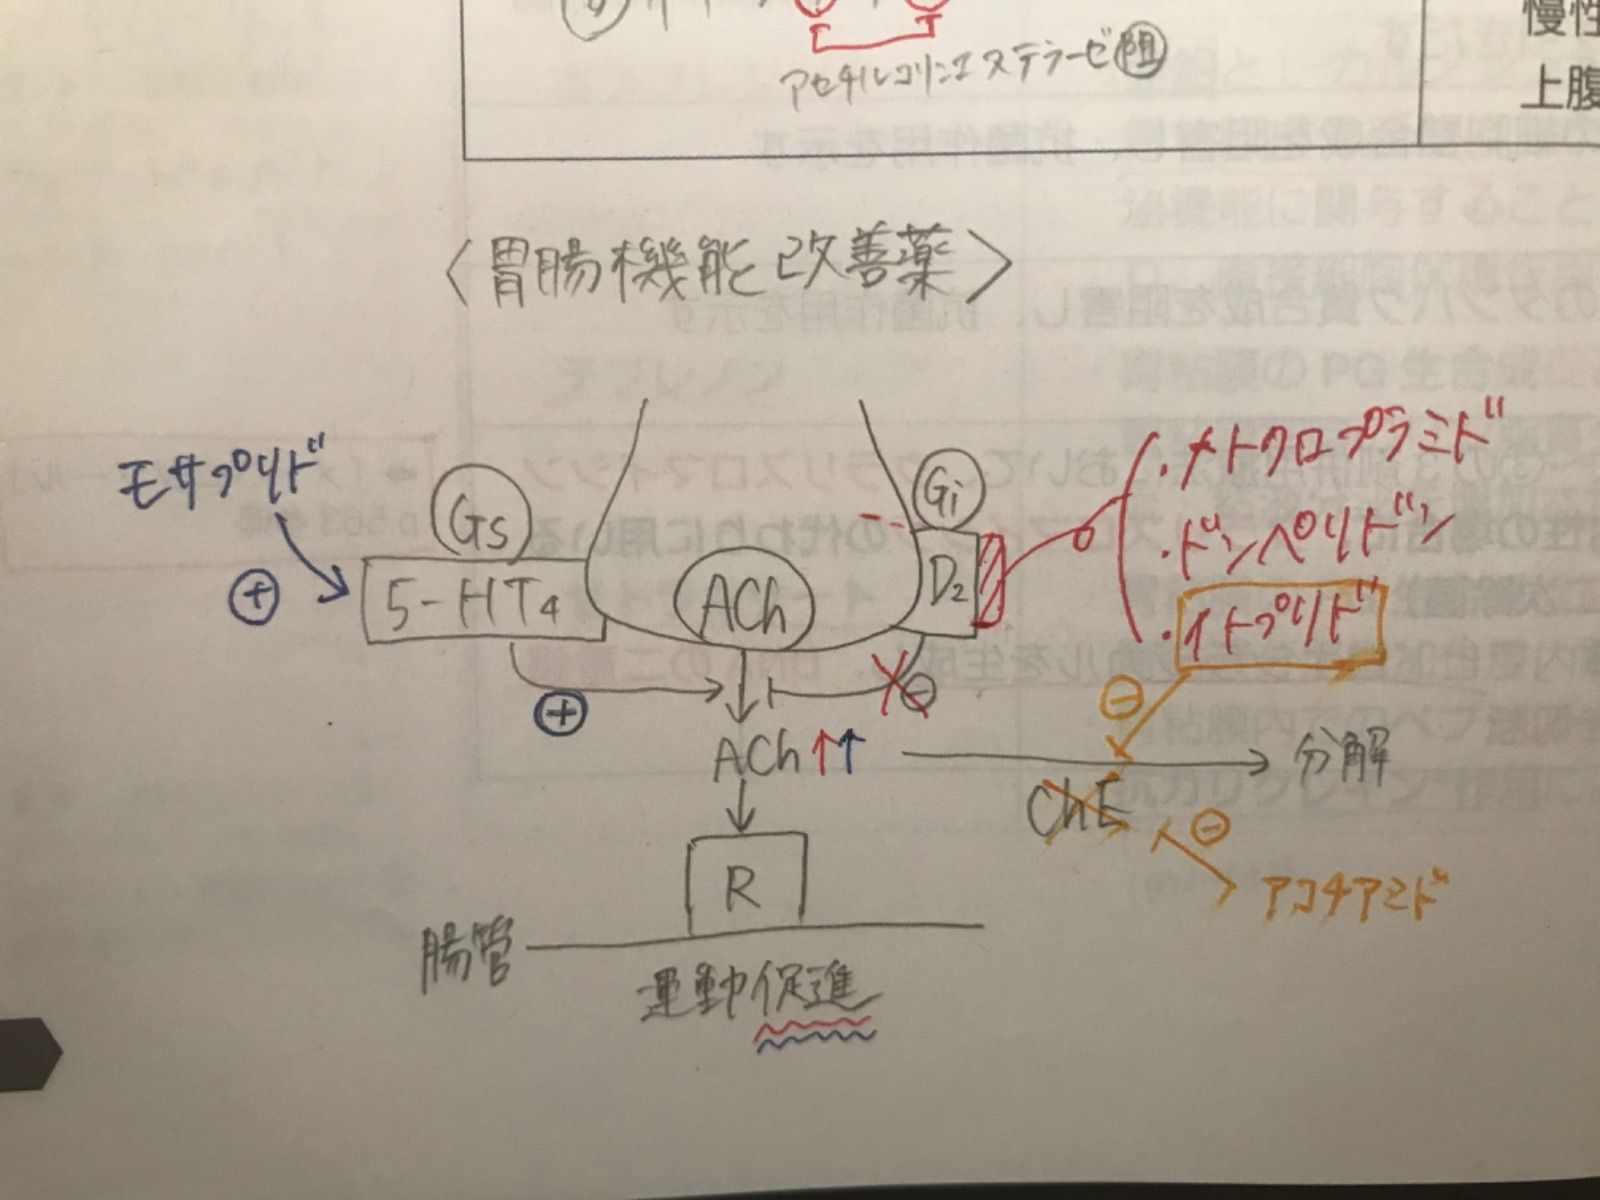 アセチルコリンエステラーゼ阻
慢性
上腹
〈胃腸機能改善薬〉
モサプリド
Gs
5-HT4
ACh
Gi
D2
・メトクロプラミド
・ドンペリドン
・イトプリド
+
+
⊖
⊖
ACh↑↑
分解
ChE
⊖
アコチアミド
R
腸管
運動促進